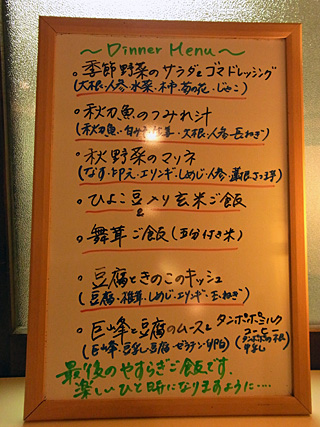 ～Dinner Menu～
。季節野菜のサラダ ゴマドレッシング
(大根・人参・水菜・柿・菊の花・じゃこ)
。秋刀魚のつみれ汁
(秋刀魚・大根・人参・長ねぎ)
。秋野菜のマリネ
(なす・エリンギ・しめじ・人参・蓮根)
。ひよこ豆入り玄米ご飯
&
。舞茸ご飯(五分付き米)
。豆腐ときのこのキッシュ
(豆腐・椎茸・しめじ・エリンギ・玉ねぎ)
。巨峰と豆腐のムースと タンポポミルクコーヒー
(巨峰・豆乳・豆腐・ゼラチン・卵白) (タンポポの根・牛乳)
最後のやすらぎご飯です。
楽しいひと時になりますように‥‥